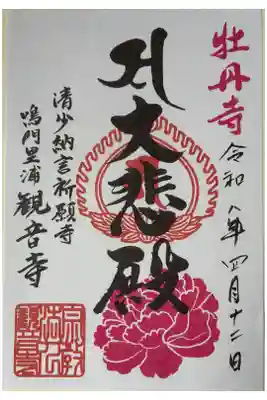 牡丹寺
令和八年四月十二日
大悲殿
清少納言祈願寺
鳴門里浦
観音寺